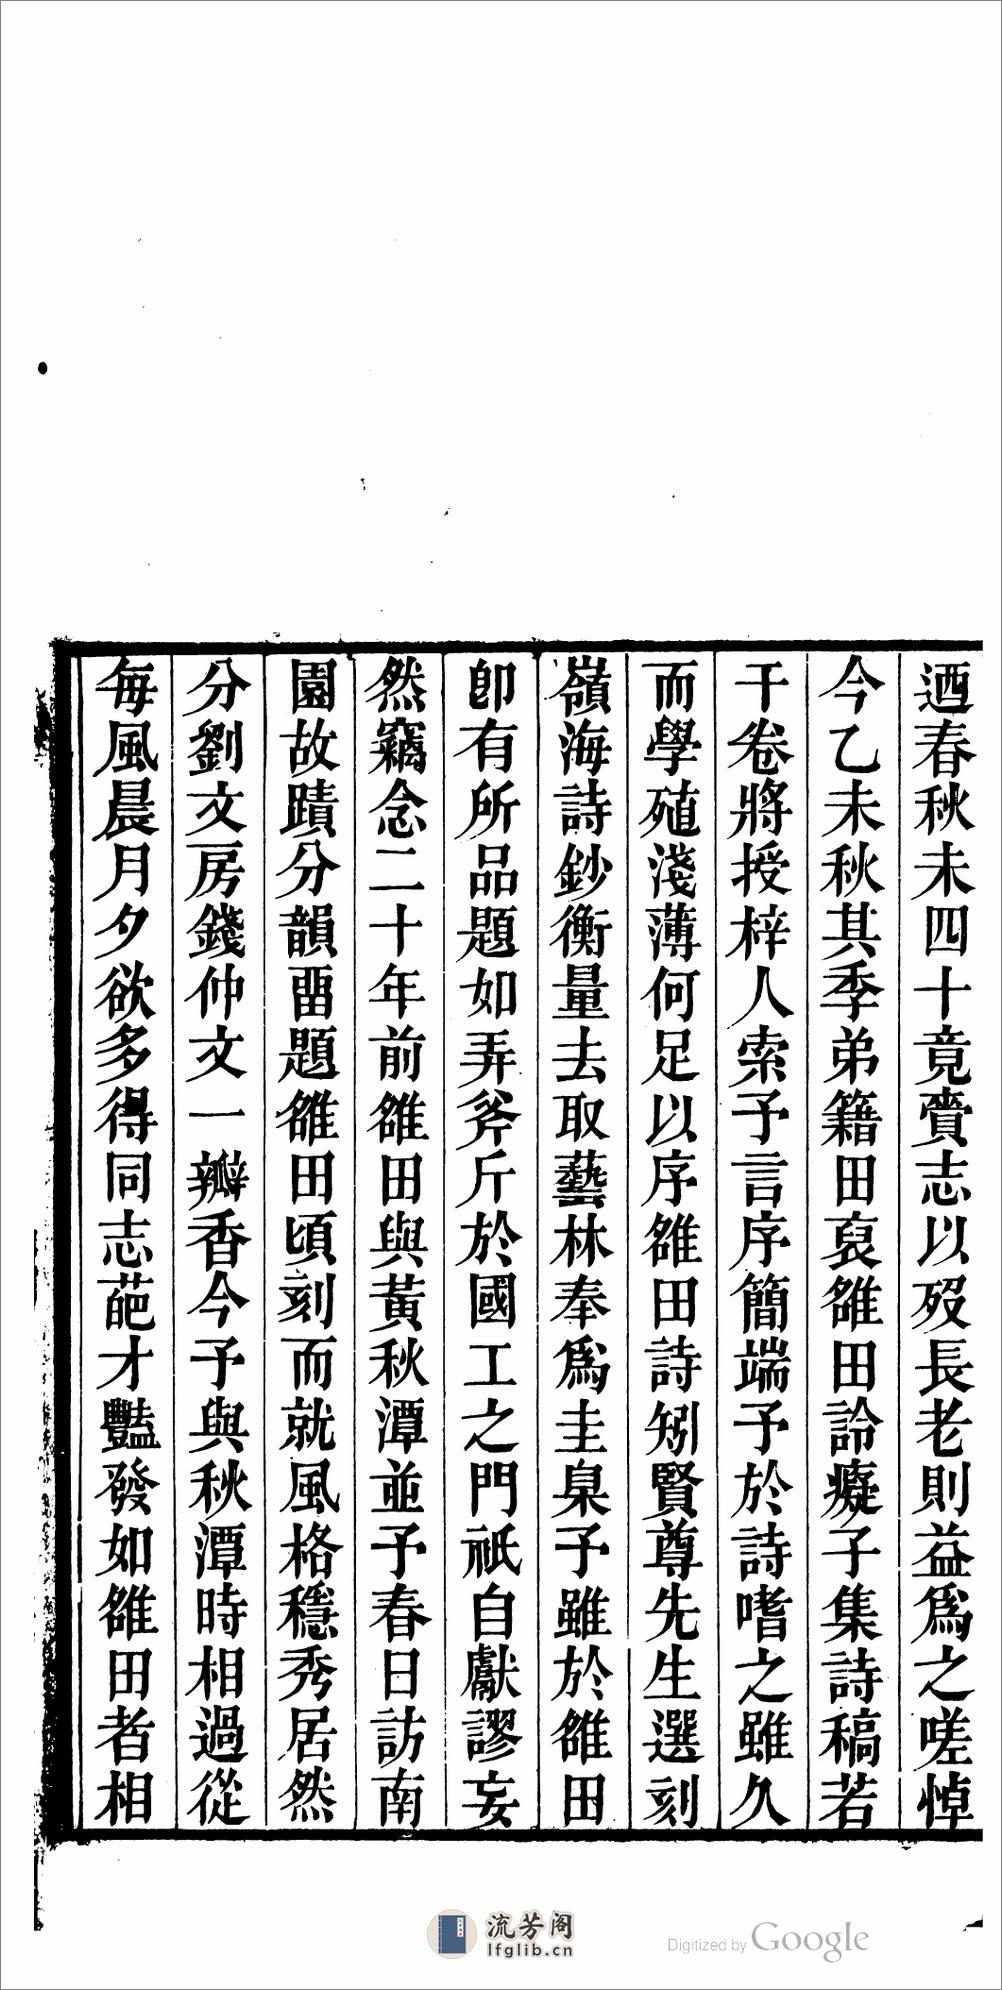 迺春秋未四十竟賫志以歿長老則益爲之嗟悼
今乙未秋其季弟籍田裒雒田詅癡子集詩稿若
干卷將授梓人索予言序簡端予於詩嗜之雖久
而學殖淺薄何足以序雒田詩矧賢尊先生選刻
嶺海詩鈔衡量去取藝林奉爲圭臬予雖於雒田
卽有所品題如弄斧斤於國工之門祇自獻謬妄
然竊念二十年前雒田與黃秋潭並予春日訪南
園故蹟分韻畱題雒田頃刻而就風格穩秀居然
分劉文房錢仲文一瓣香今予與秋潭時相過從
每風晨月夕欲多得同志葩才豔發如雒田者相
流芳阁
lfglib.cn
Digitized by Google